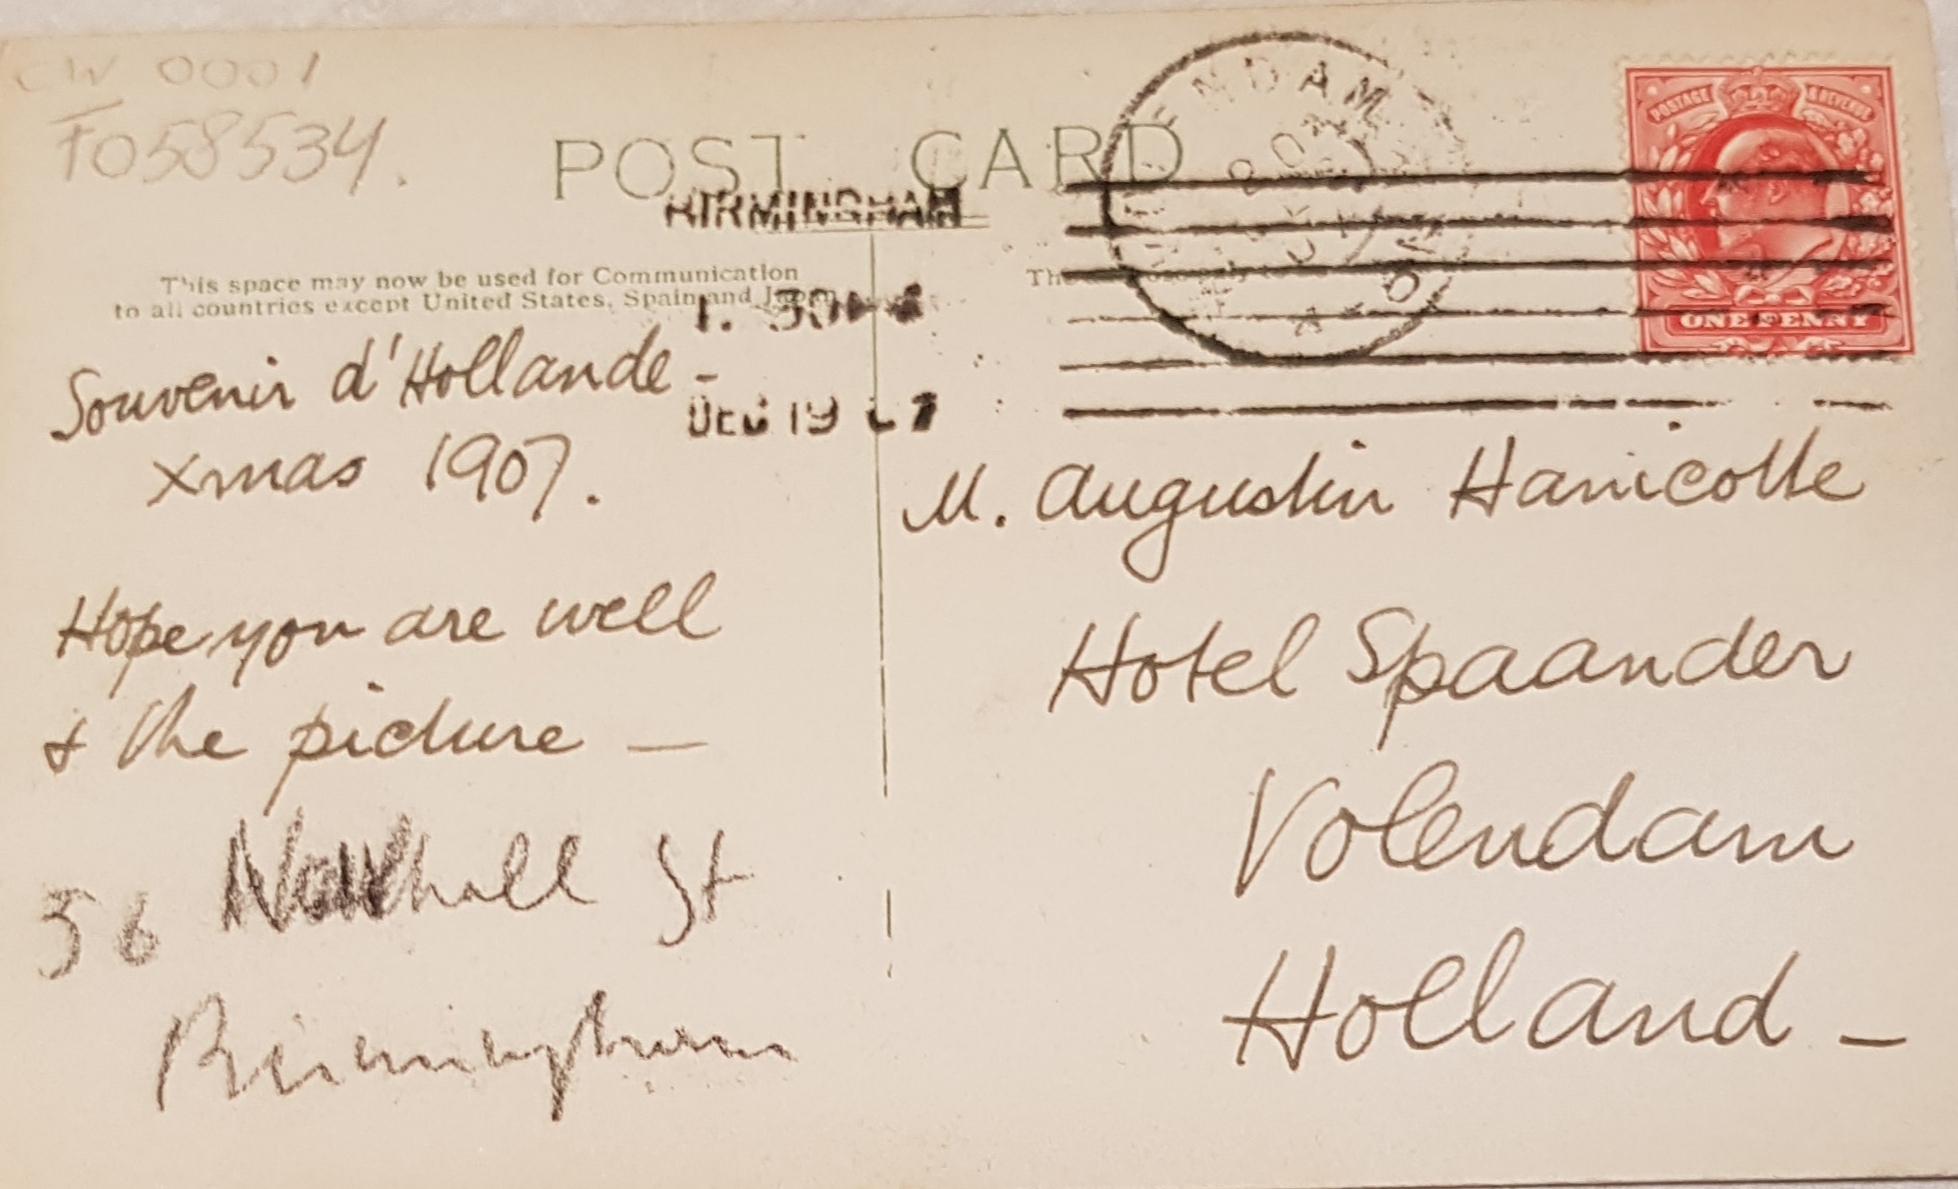 CW 0001
F058534.
POST CARD
BIRMINGHAM
VOLENDAM
POSTAGE & REVENUE
ONE PENNY
This space may now be used for Communication
to all countries except United States, Spain and Japan
1. 30
DEC 19 07
Souvenir d'Hollande -
xmas 1907.
Hope you are well
& the picture —
56 Newhall St
Birmingham
M. Augustin Hanicotte
Hotel Spaander
Volendam
Holland —